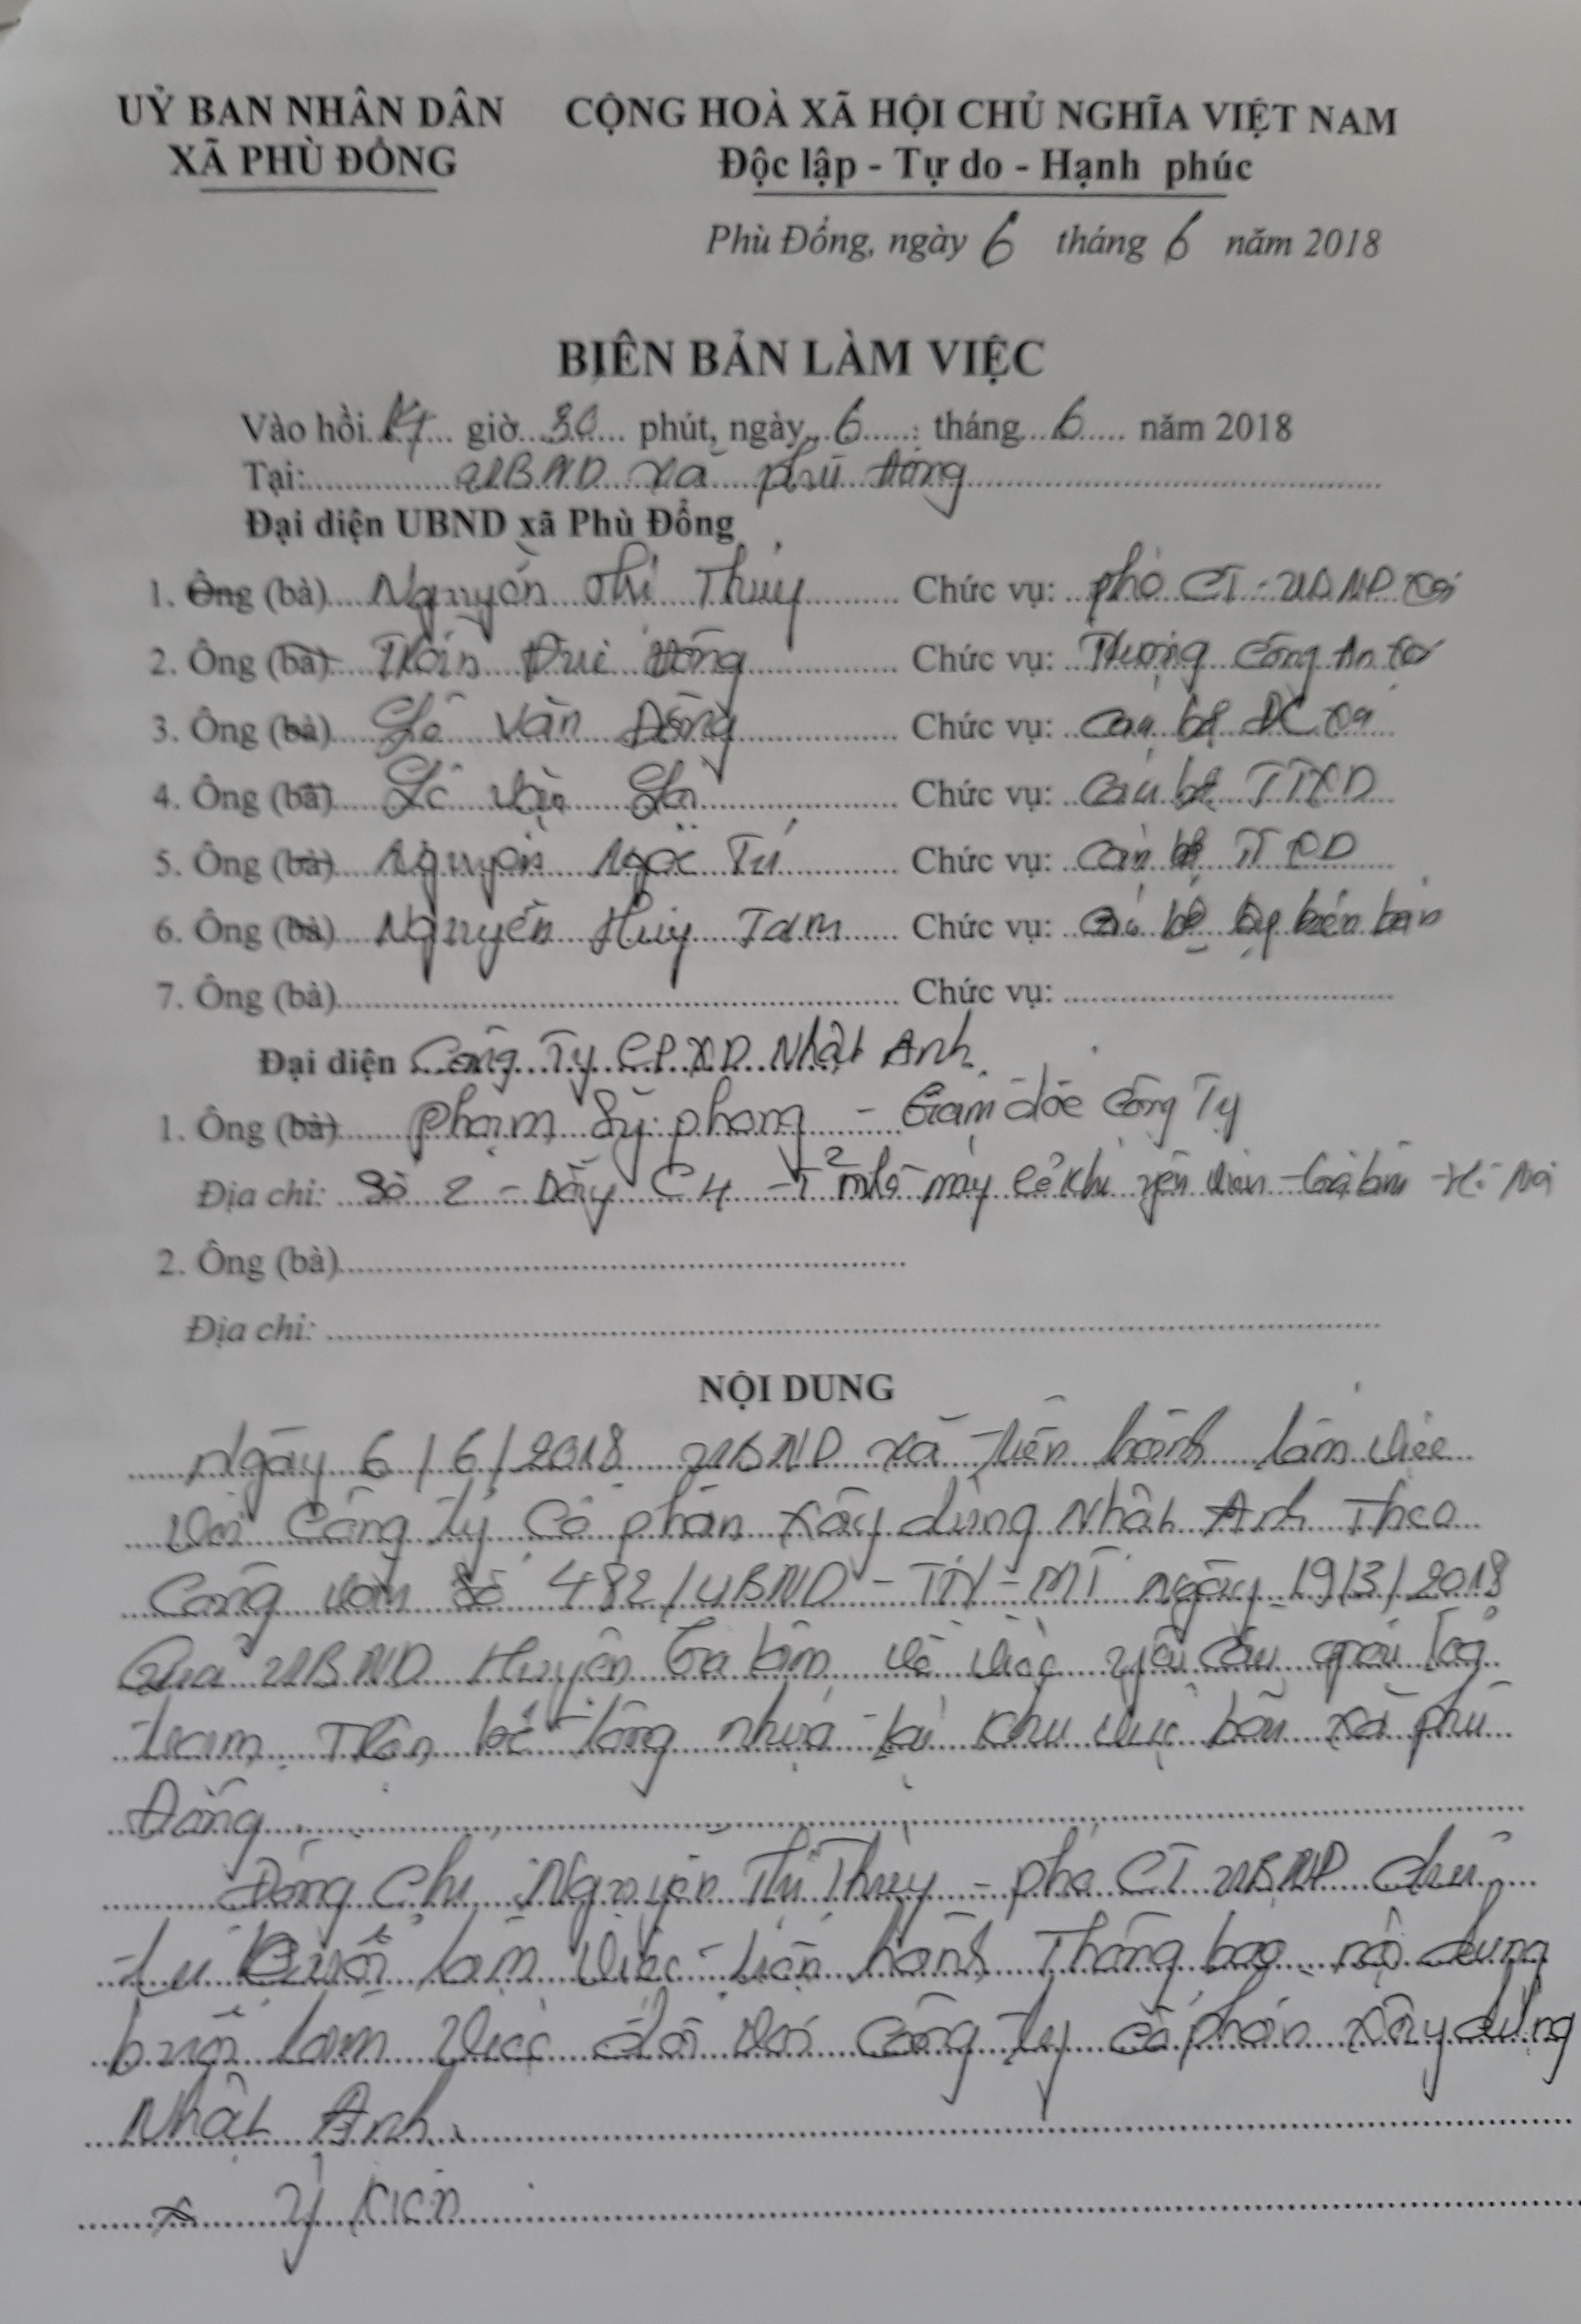 UỶ BAN NHÂN DÂN
XÃ PHÙ ĐỔNG
CỘNG HOÀ XÃ HỘI CHỦ NGHĨA VIỆT NAM
Độc lập - Tự do - Hạnh phúc
Phù Đổng, ngày 6 tháng 6 năm 2018
BIÊN BẢN LÀM VIỆC
Vào hồi giờ 30 phút, ngày 6 tháng 6 năm 2018
Tại: UBND xã phù đổng
Đại diện UBND xã Phù Đổng
1. Ông (bà) Nguyễn Thị Thúy Chức vụ: phó CT. UBND xã
2. Ông (bà) Đức Chức vụ: Trưởng Công An xã
3. Ông (bà) Lê Văn Đông Chức vụ: Cán bộ ĐC xã
4. Ông (bà) Lê Văn Chức vụ: Cán bộ TTXD
5. Ông (bà) Nguyễn Ngọc Tú Chức vụ: Cán bộ TTXD
6. Ông (bà) Nguyễn Huy Tam Chức vụ: Cán bộ biên bản
7. Ông (bà) Chức vụ:
Đại diện Công Ty CP.XD. Nhật Anh
1. Ông (bà) Phạm Sỹ phong - Giám đốc Công Ty
Địa chỉ: Số 2 - Dãy C4 - T² nhà máy cơ khí yên viên - Gia Lâm - Hà Nội
2. Ông (bà)
Địa chỉ:
NỘI DUNG
Ngày 6/6/2018 UBND xã tiến hành làm việc
với Công ty Cổ phần xây dựng Nhật Anh Theo
Công văn số 482/UBND-TN-MT ngày 19/3/2018
Của UBND Huyện Gia Lâm về việc yêu cầu giải tỏa
trạm Trộn bê tông nhựa tại khu vực bãi xã phù
Đổng
Đồng Chí Nguyễn Thị Thúy - phó CT UBND chủ
trì buổi làm việc tiến hành Thông báo nội dung
buổi làm việc đối với Công ty cổ phần xây dựng
Nhật Anh.
* Ý kiến